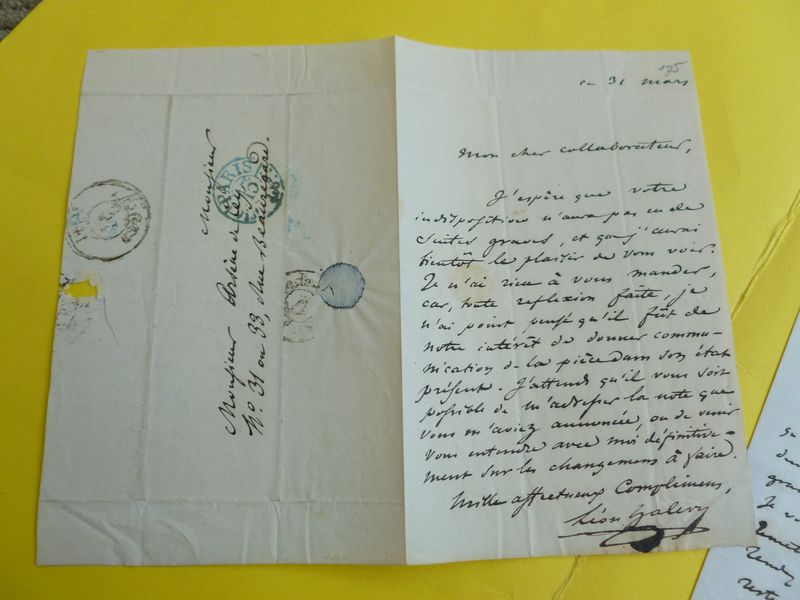 175
ce 31 mars
Mon cher collaborateur,
J'espère que votre
indisposition n'aura pas eu de
suites graves, et que j'aurai
bientôt le plaisir de vous voir.
Je n'ai rien à vous mander,
car, toute reflexion faite, je
n'ai point pensé qu'il fût de
notre intérêt de donner commu-
nication de la pièce dans son état
présent. J'attends qu'il vous soit
possible de m'adresser la note que
vous m'aviez annoncée, ou de venir
vous entendre avec moi définitive-
ment sur les changemens à faire.
Mille affectueux Complimens,
Léon Halevy
Monsieur
Monsieur Arsène de Cey
No. 31 ou 33, Rue Beauregard.
PARIS